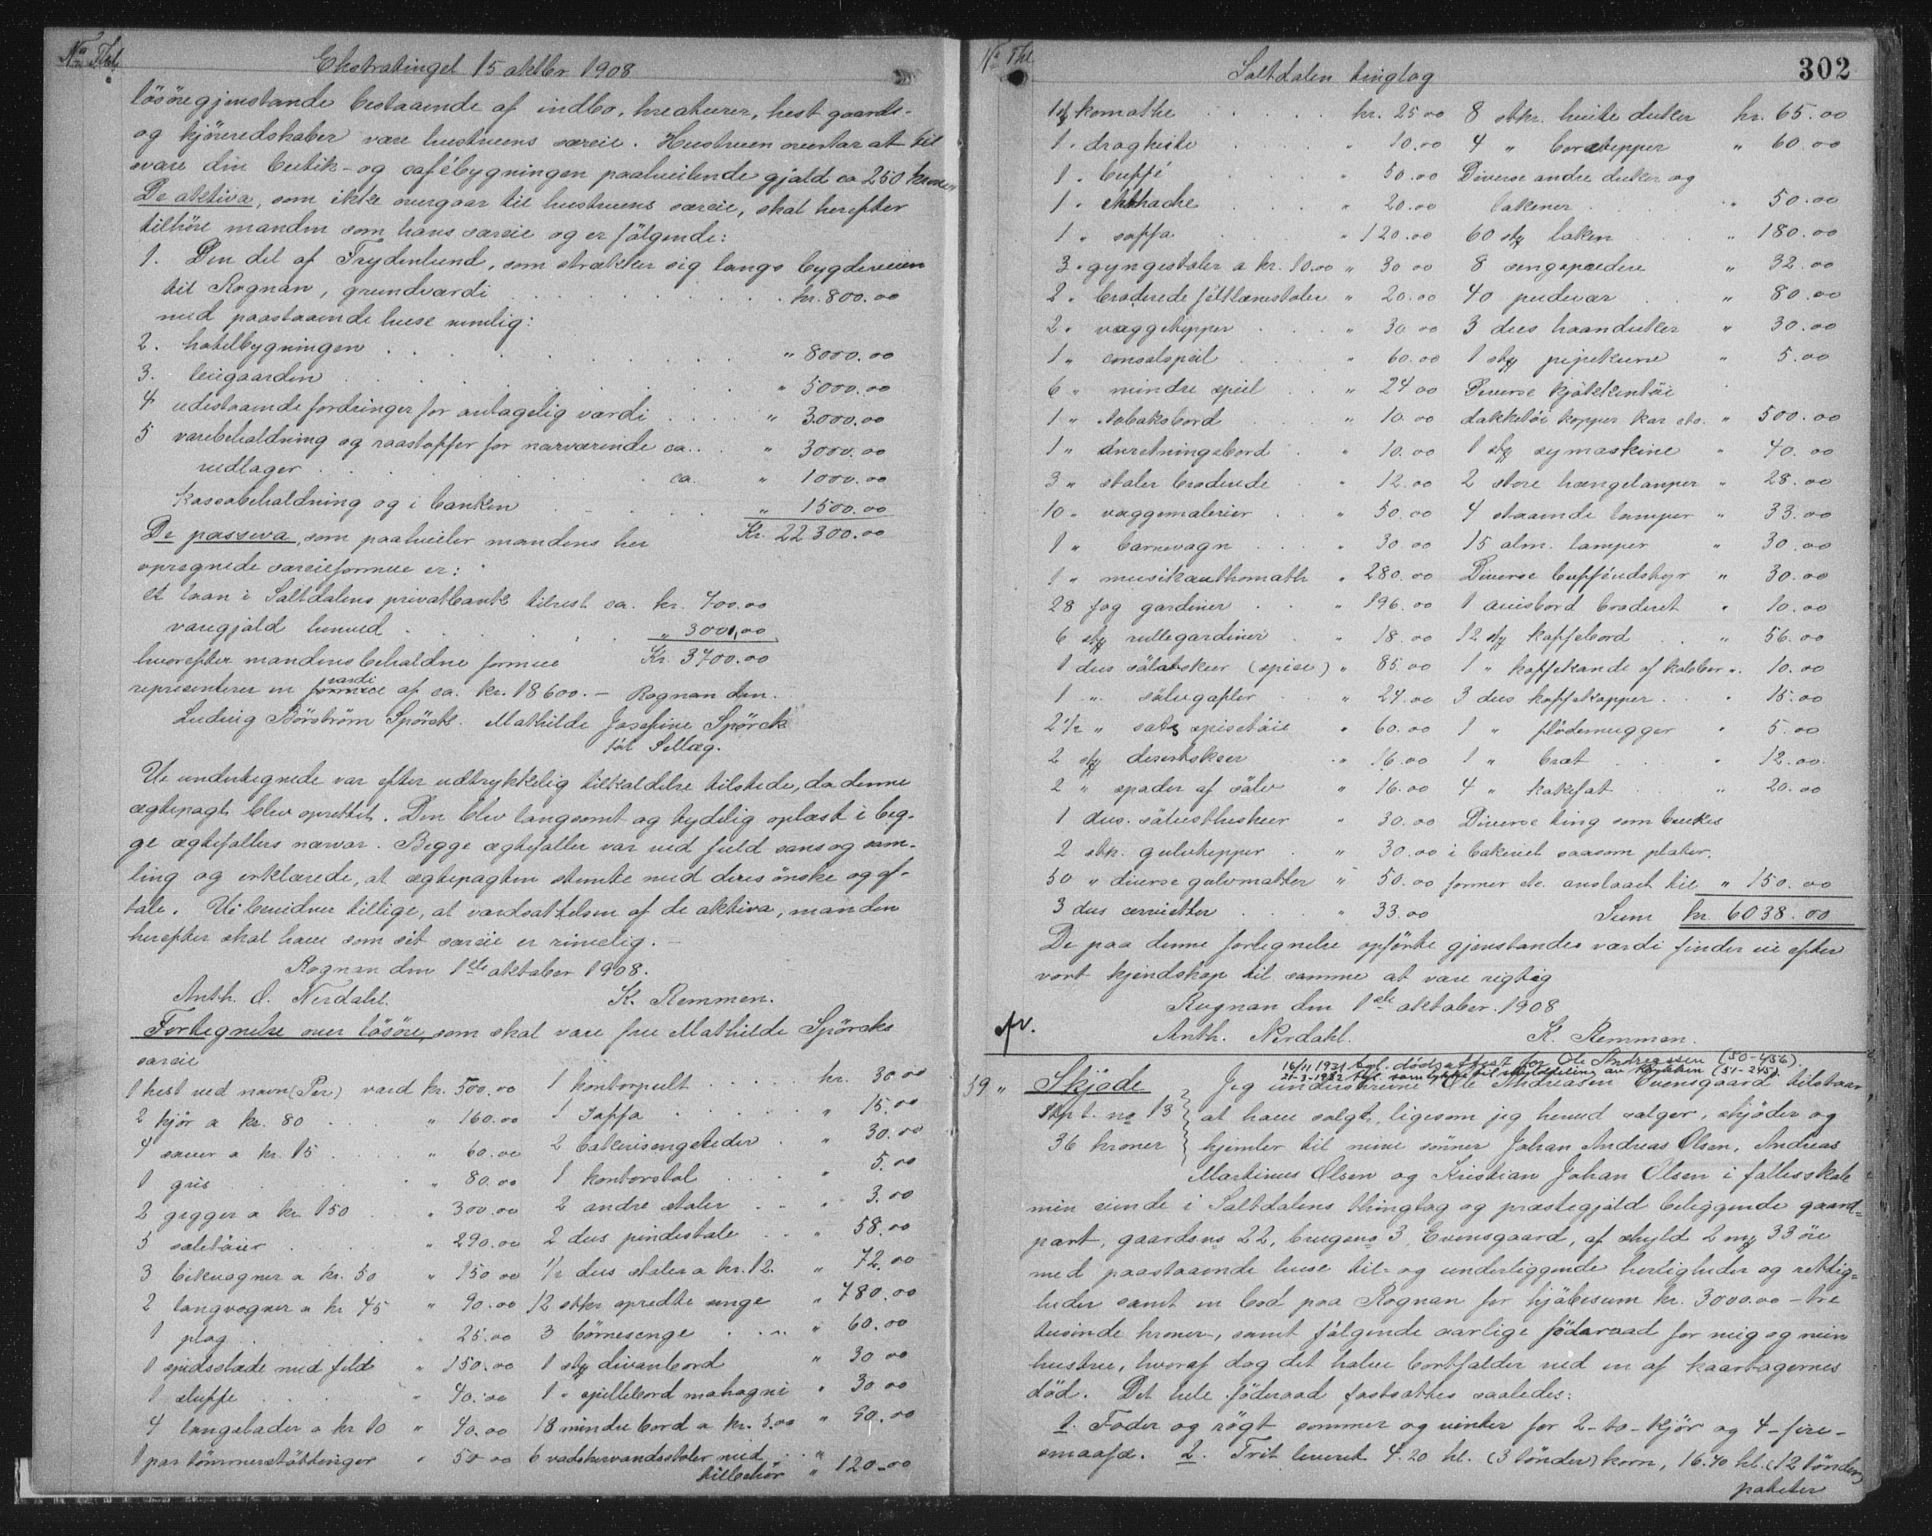 No Thl.
Ekstratinget 15 oktbr. 1908
lösöregjenstande bestaaende af indbo, kreaturer, hest gaards-
og kjöreredskaber være hustruens særeie. Hustruen overtar at til
svare din butik- og cafébygningen paahvilende gjæld ca 250 kroner
De aktiva, som ikke overgaar til hustruens særeie, skal herefter
tilhöre manden som hans særeie og er fölgende:
1. Den del af Frydenlund, som strækker sig langs bygdeveien
til Rognan, grundværdi . . . kr. 800.00
med paastaaende huse nemlig:
2. hotelbygningen . . . " 8000.00
3. leiegaarden . . . " 5000.00
4 udestaaende fordringer for antagelig værdi . . . " 3000.00
5 varebeholdning og raastoffer for nærværende ca. . " 3000.00
vedlager . . . ca. " 1000.00
kassabeholdning og i banken . . . " 1500.00
De passiva, som paahviler mandens her Kr. 22300.00
opregnede særeieformue er:
et laan i Saltdalens privatbank tilrest ca. kr. 700.00
varegjæld henved . . . " 3000.00
hvorefter mandens beholdne formue Kr. 3700.00
representerer en formue værdi af ca. kr. 18600.— Rognan den.
Ludvig Börström Spörck. Mathilde Josefine Spörck
föt Selläg.
Vi undertegnede var efter udtrykkelig tilkaldelse tilstede, da denne
ægtepagt blev oprettet. Den blev langsomt og tydelig oplæst i beg-
ge ægtefællers nærvær. Begge ægtefæller var ved fuld sans og sam-
ling og erklærede, at ægtepagten stemte med deres önske og af-
tale. Vi bevidner tillige, at værdsættelsen af de aktiva, manden
herefter skal have som sit særeie er rimelig. —
Rognan den 1ste oktober 1908.
Anth. O. Nerdahl. K. Remmen.
Fortegnelse over lösöre, som skal være frue Mathilde Spörcks
særeie
1 hest ved navn (Per) værd kr. 500.00 1 kontorpult . . . kr. 30.00
2 kjör a kr. 80 . . " 160.00 1 saffa . . . " 15.00
4 sauer a kr. 15 . . " 60.00 2 bakerisengesteder . " 30.00
1 gris . . . " 80.00 1 kontorstol . . . " 5.00
2 gigger a kr. 150 . . " 300.00 2 andre stoler . . " 3.00
5 seletöier . . . " 290.00 2 dus pindestole . . " 58.00
3 beitevogner a kr. 50 " 150.00 1/2 dus stoler a kr. 12. " 72.00
2 langvogner a kr 45 " 90.00 12 stkr opredte senge " 780.00
1 plog . . . " 25.00 3 börnesenge . . . " 60.00
1 spidsslæde med feld " 150.00 1 stk divanbord " 30.00
1 sluffe . . . " 40.00 1 " spillebord mahogni " 30.00
4 langslæder a kr 10 " 40.00 18 mindre bord a kr. 5.00 " 90.00
1 par tömmerstöttinger " 50.00 6 vaskevandsstoler med
tilbehör " 120.00
No Thl.
Saltdalen tinglag
302
1 stk komathe . . . kr. 25.00 8 stkr. hvite duker kr. 65.00
1 " dragkiste . . . " 10.00 4 " bordtepper " 60.00
1 " buffé . . . " 50.00 Diverse andre duker og
1 " Attache . . . " 20.00 lakener . . . " 50.00
1 " saffa . . . " 120.00 60 stk laken . . . " 180.00
3 " gyngestoler a kr. 10.00 " 30.00 8 sengespredere " 32.00
2 " broderede feltlænestoler " 20.00 40 pudevær . . " 80.00
2 " væggetepper . . . " 30.00 3 dus haanduker " 30.00
1 " consolspeil . . . " 60.00 1 stk pipekrune " 5.00
6 " mindre speil . . " 24.00 Diverse kjökkentöi
1 " tobaksbord . . . " 10.00 dækketöi kopper kar etc. " 500.00
1 " anretningsbord . " 10.00 1 stk symaskine " 40.00
3 " stoler broderede . " 12.00 2 store hængelamper " 28.00
10 " væggemalerier . . " 50.00 4 staaende lamper " 33.00
1 " barnevogn . . . " 30.00 15 alm. lamper " 30.00
1 " musikauthomath " 280.00 Diverse buffeudstyr " 30.00
28 fag gardiner . . " 196.00 1 avisbord broderet " 10.00
6 stk rullegardiner . " 18.00 12 stk kaffebord . . " 56.00
1 dus sölvskeer (spise) " 85.00 1 " kaffekande af kobber " 10.00
1 " sölvgafler . . " 24.00 3 dus kaffekopper . . " 15.00
2 1/2 " sats spisetöie " 60.00 1 " flödemugger " 5.00
2 stk desertskeer . " 16.00 1 " bræt . . . " 12.00
2 " spader af sölv " 16.00 4 " kakefat . . " 20.00
1 dus. sölvtheskeer " 30.00 Diverse ting som brukes
2 stk. gulvtepper . " 30.00 i bakeriet saasom plater,
50 " diverse gulvmatter " 50.00 former etc. anslaaet til " 150.00
3 dus servietter . . . " 33.00 Sum kr. 6038.00
De paa denne fortegnelse opförte gjenstandes værdi finder vi efter
vort kjendskap til samme at være rigtig
Rognan den 1ste oktober 1908
Anth. Nerdahl. K. Remmen.
16/11 1931 tgl. dödsattest for Ole Andreassen (50-456).
59 " Skjöde Jeg undertegnede Ole Andreasen Evensgaard tilstaar
Stpt. no 13 at have solgt, ligesom jeg herved sælger, skjöder og
36 kroner hjemler til mine sönner Johan Andreas Olsen, Andreas
Martinus Olsen og Kristian Johan Olsen i fællesskab
min eiende i Saltdalens thinglag og præstegjæld beliggende gaard-
part, gaardsno 22, brugsno 3, Evensgaard, af skyld 2 mk 33 öre
med paastaaende huse til- og underliggende herligheder og rettig-
heder samt en bod paa Rognan for kjöbesum kr. 3000.00 — tre
tusinde kroner —, samt fölgende aarlige föderaad for mig og min
hustru, hvoraf dog det halve bortfalder ved en af kaartagernes
död. Det hele föderaad fastsættes saaledes:
1. Foder og rögt sommer og vinter for 2-to-kjör og 4-fire-
smaafæ. 2. Frit leveret 4.20 hl. (3 tönder) korn, 16.70 hl. (12 tönder)
poteter